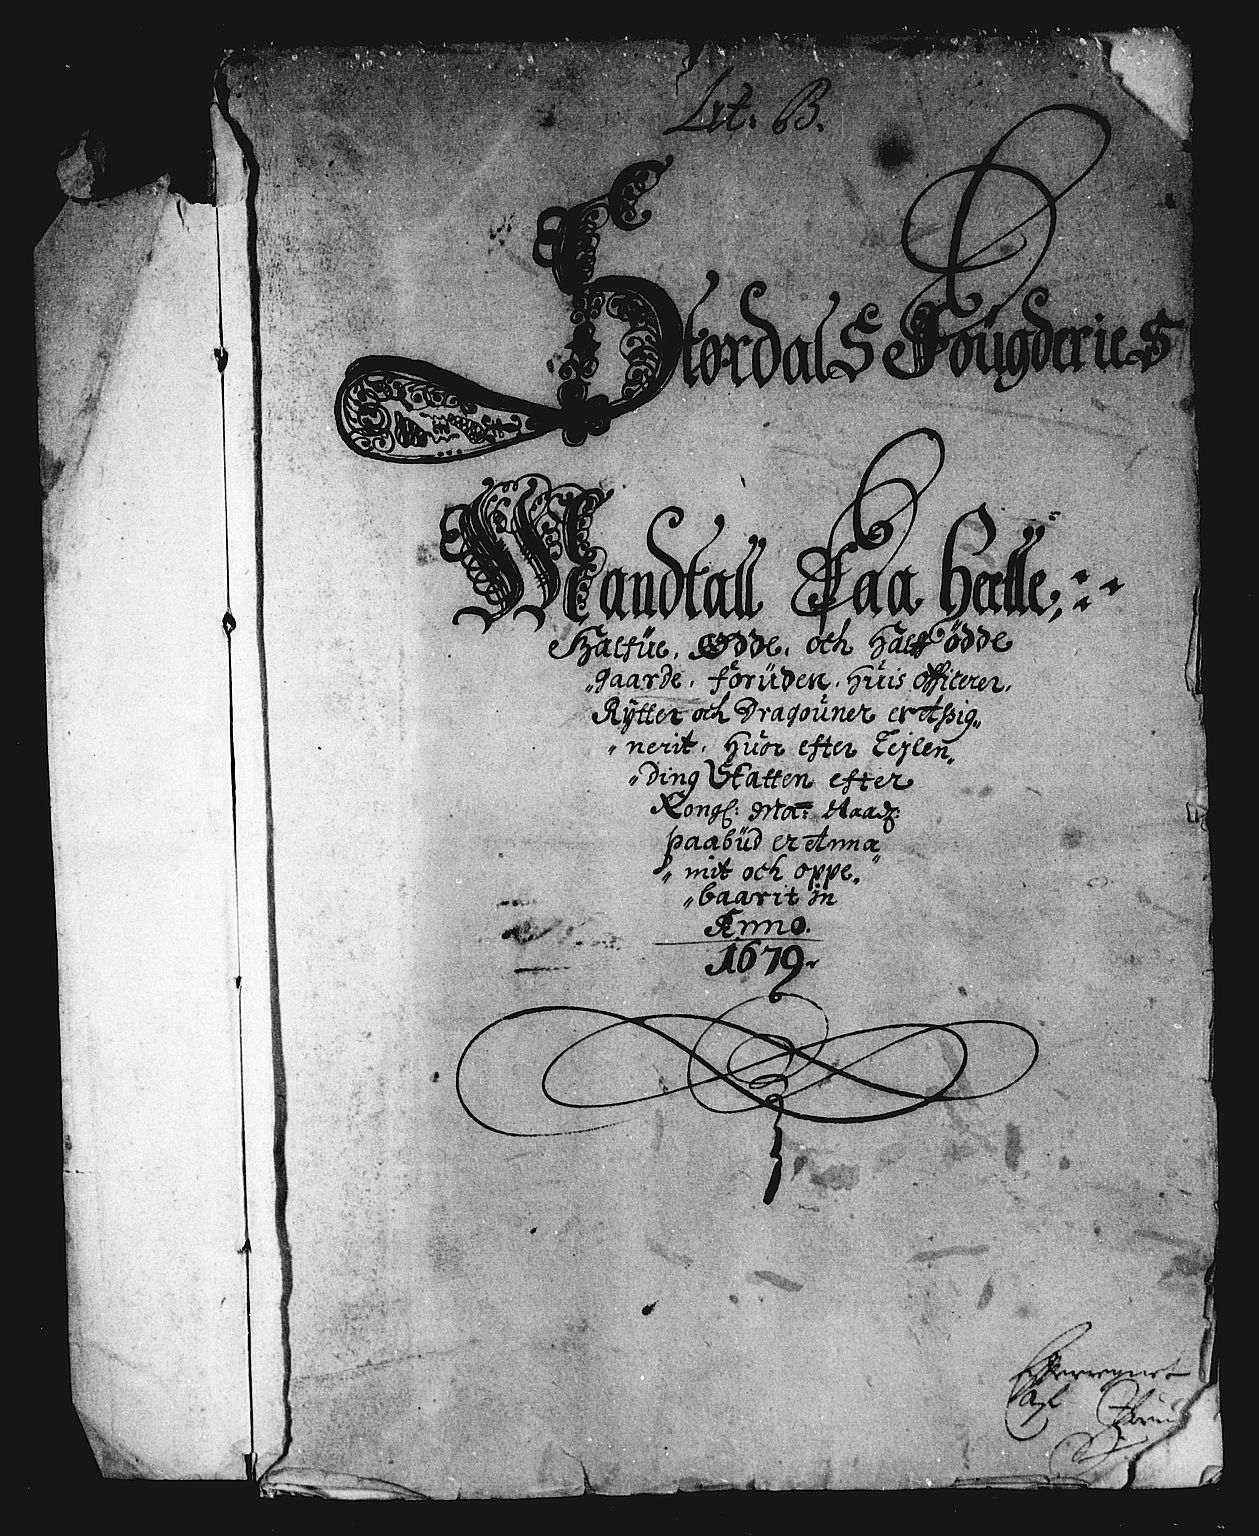 Lit. B.
Stordals Fougderies
Mandtall Paa Heelle;
Halfüe, Ødde, och Half ödde
gaarde, förüden, hüis officerer,
Rÿtter och Dragoüner er Aßig„
„nerit, hüor efter Lejlen„
„ding Skatten efter
Kongl: Ma: Naadz:
paabüd er Anna„
„mit och oppe„
„baarit in
Anno.
1679